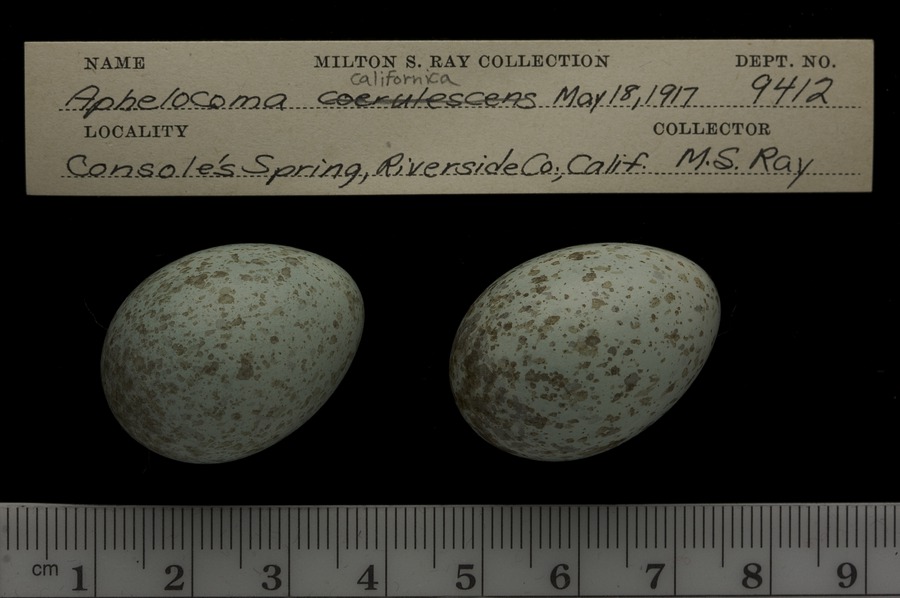 NAME MILTON S. RAY COLLECTION DEPT. NO.
californica
Aphelocoma coerulescens May 18, 1917 9412
LOCALITY COLLECTOR
Console's Spring, Riverside Co., Calif. M.S. Ray
cm 1 2 3 4 5 6 7 8 9